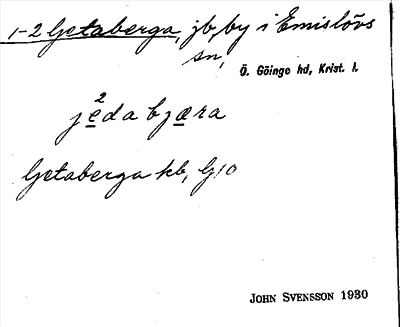 1-2 Getaberga, jb, by i Emislövs
sn,
Ö. Göinge hd, Krist. l.
2
jeda bjæra
Getaberga kb, G10
JOHN SVENSSON 1930